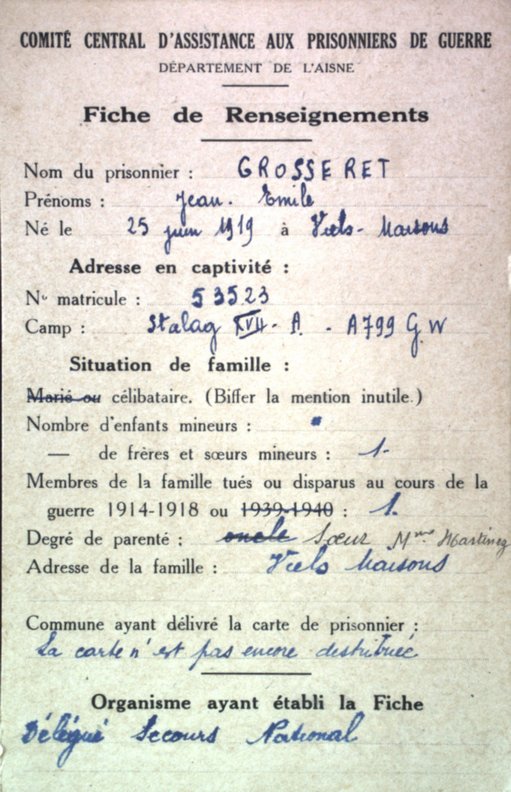 COMITÉ CENTRAL D'ASSISTANCE AUX PRISONNIERS DE GUERRE
DÉPARTEMENT DE L'AISNE
Fiche de Renseignements
Nom du prisonnier : GROSSERET
Prénoms : Jean. Emile
Né le 25 juin 1919 à Viels-Maisons
Adresse en captivité :
N° matricule : 53523
Camp : Stalag XVII-A. - A799 G.W
Situation de famille :
Marié ou célibataire. (Biffer la mention inutile.)
Nombre d'enfants mineurs : "
— de frères et sœurs mineurs : 1.
Membres de la famille tués ou disparus au cours de la
guerre 1914-1918 ou 1939-1940 : 1.
Degré de parenté : oncle Sœur Mme Martinez
Adresse de la famille : Viels Maisons
Commune ayant délivré la carte de prisonnier :
La carte n'est pas encore distribuée
Organisme ayant établi la Fiche
Délégué Secours National